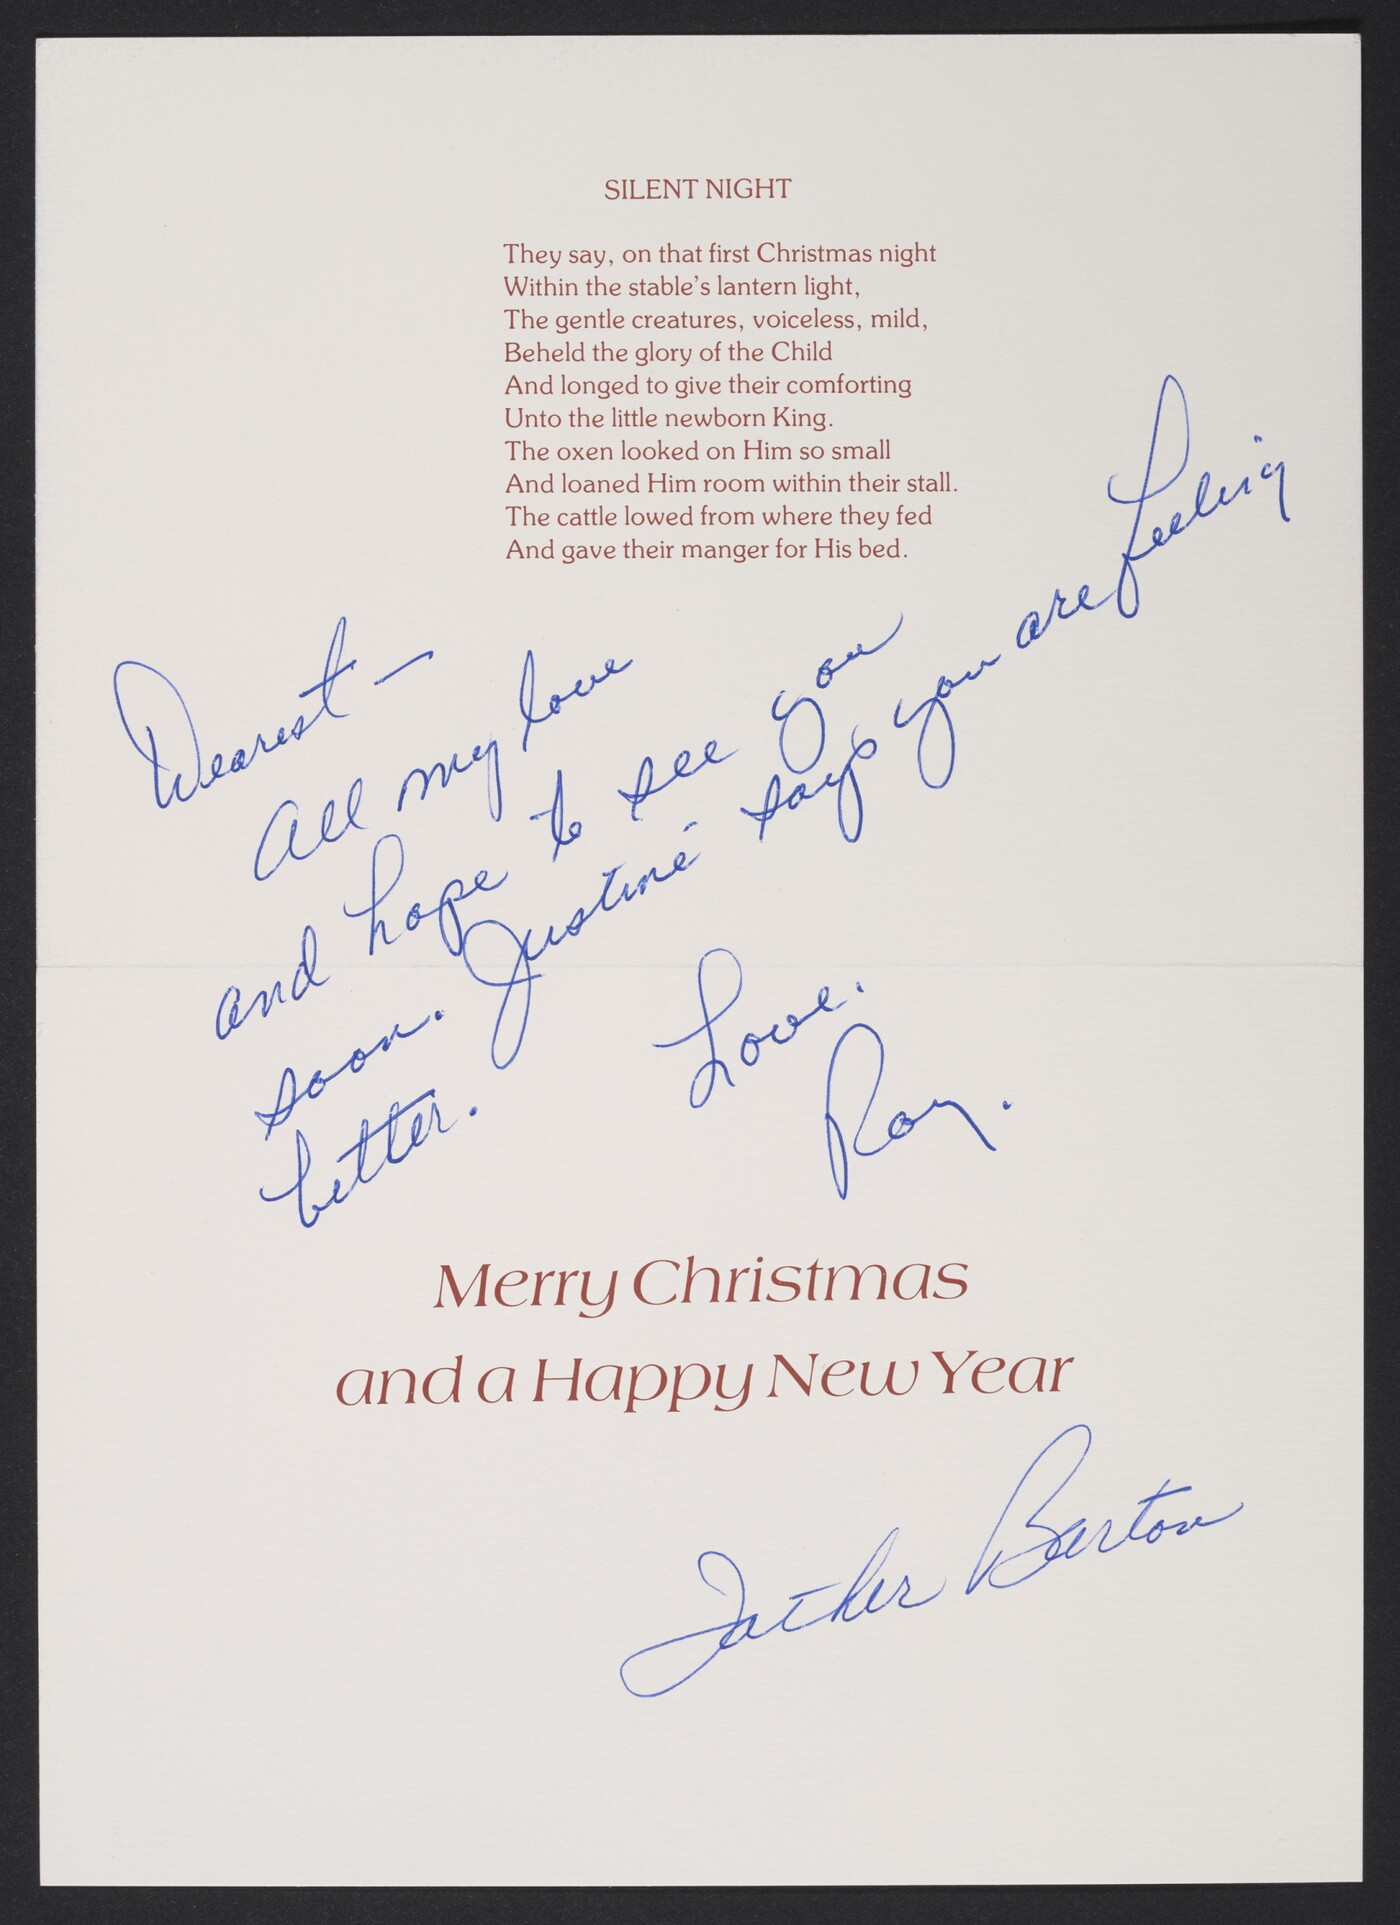 SILENT NIGHT
They say, on that first Christmas night
Within the stable's lantern light,
The gentle creatures, voiceless, mild,
Beheld the glory of the Child
And longed to give their comforting
Unto the little newborn King.
The oxen looked on Him so small
And loaned Him room within their stall.
The cattle lowed from where they fed
And gave their manger for His bed.
Dearest —
All my love
and hope to see you
soon. Justine says you are feeling
better.
Love.
Ray.
Merry Christmas
and a Happy New Year
Father Barton